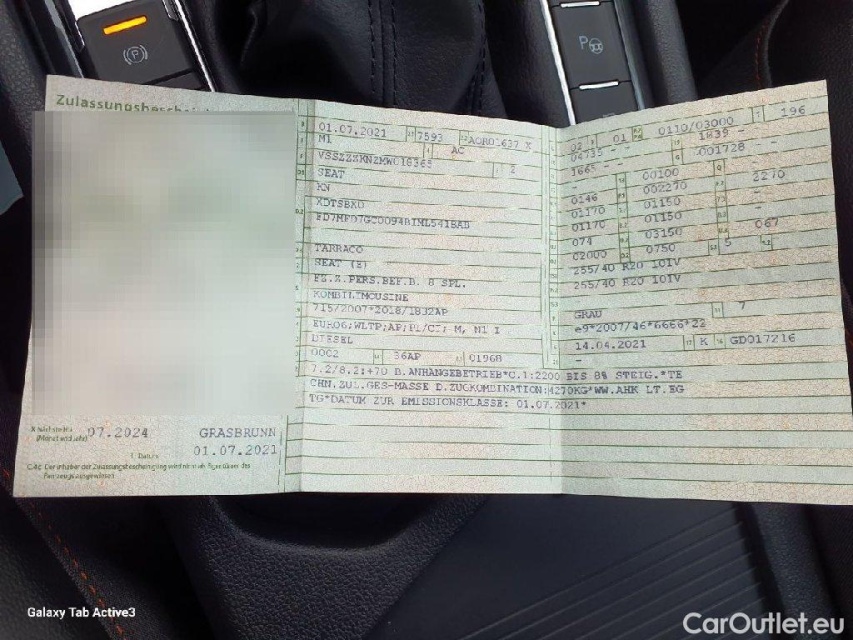 P
P
Zulassungsbesche
01.07.2021 7593 AQR01637 X
M1 AC
VSSZZZKNZMW018365 2
SEAT
KN
XDTSBX0
TARRACO
SEAT (E)
FZ.Z.PERS.BEF.B. 8 SPL.
KOMBILIMOUSINE
715/2007*2018/1832AP
EURO6;WLTP;AP;PI/CI; M, N1 I
DIESEL
0002 36AP 01968
02 01 0110/03000 196
04735 - 1839 -
1665 - - 001728 -
00100
0146 002270 2270
01170 01150 -
01170 01150 -
074 03150 067
02000 0750 5
255/40 R20 101V
255/40 R20 101V
GRAU 7
e9*2007/46*6666*22
14.04.2021 K GD017216
-
7.2/8.2:+70 B.ANHANGEBETRIEB*O.1:2200 BIS 8% STEIG.*TE
CHN.ZUL.GES-MASSE D.ZUGKOMBINATION:4270KG*WW.AHK LT.EG
TG*DATUM ZUR EMISSIONSKLASSE: 01.07.2021*
07.2024 GRASBRUNN
(Monat und Jahr)
01.07.2021
Datum
C.4c Der Inhaber der Zulassungsbescheinigung wird nicht als Eigentümer des
Fahrzeugs ausgewiesen.
Galaxy Tab Active3
CarOutlet.eu